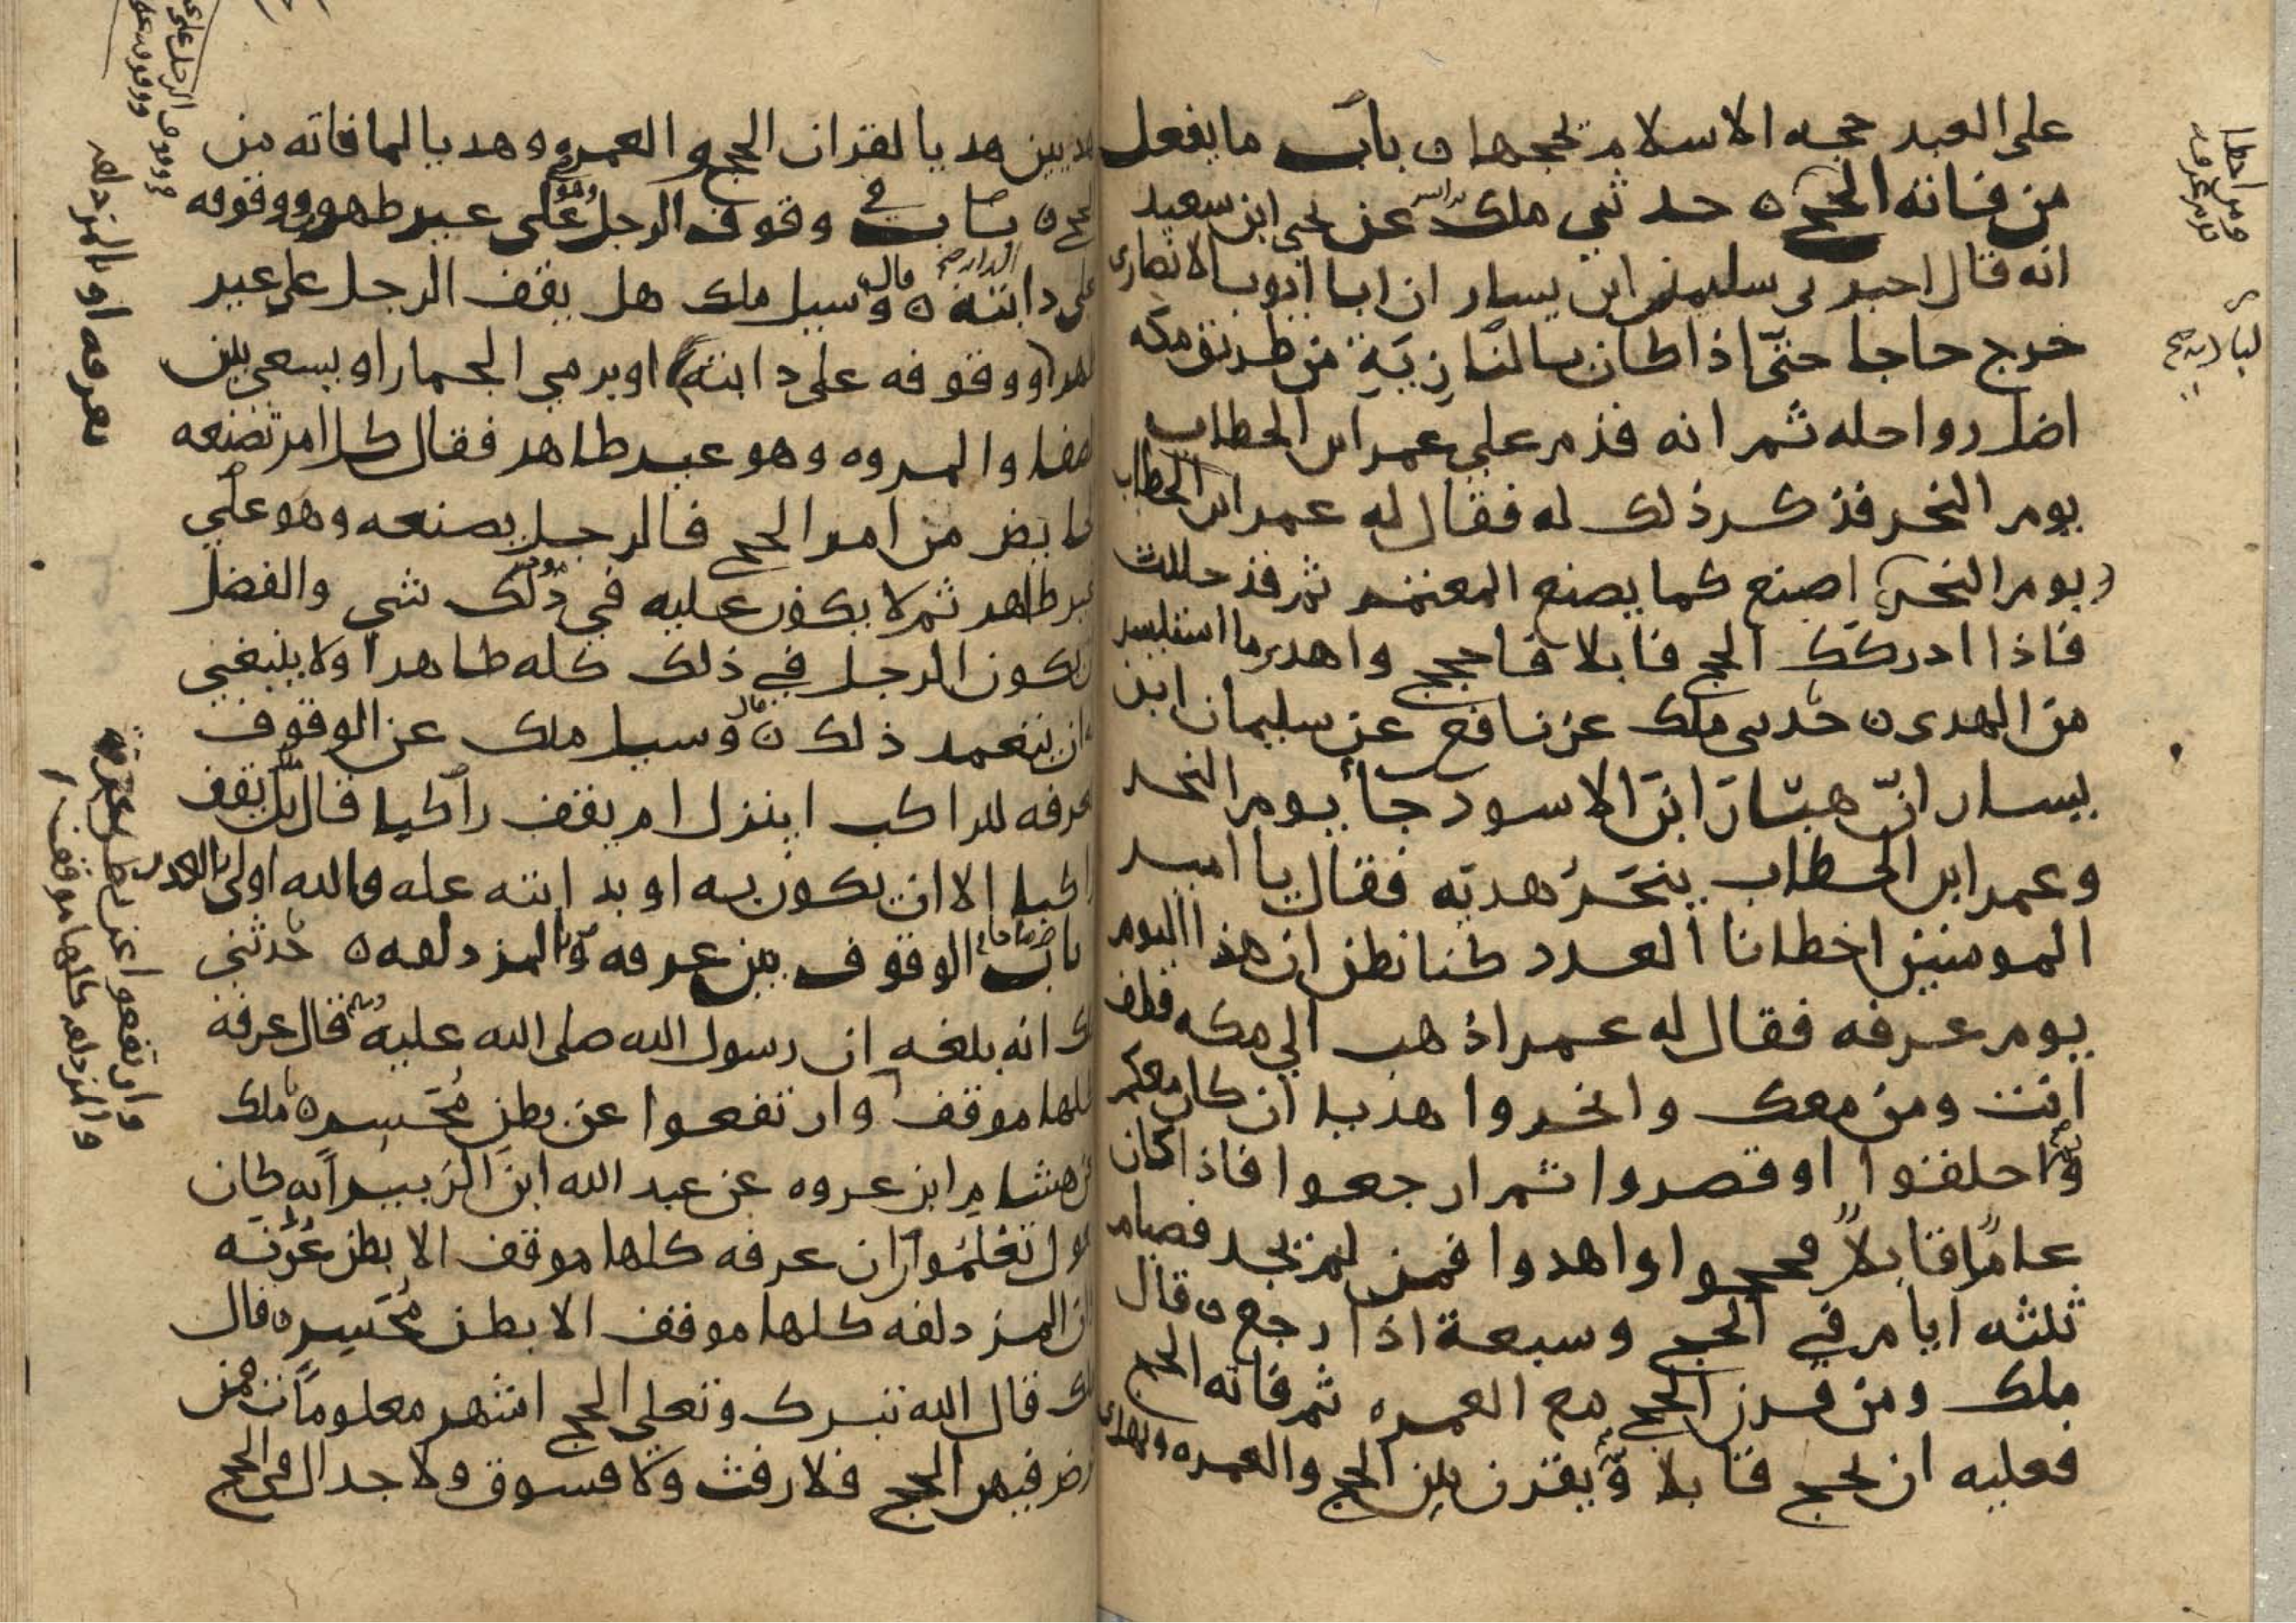 على العبد حجه الاسلام يحجها ه باب ما يفعل
من فاته الحج ه حدثني ملك عن يحيى ابن سعيد
انه قال اخبرني سليمن ابن يسار ان ابا ايوب الانصاري
خرج حاجا حتى اذا كان بالنازية من طريق مكه
اضل رواحله ثم انه قدم على عمر ابن الخطاب
يوم النحر فذكر ذلك له فقال له عمر ابن الخطاب
(يوم النحر) اصنع كما يصنع المعتمر ثم قد حللت
فاذا ادركك الحج قابلا فاحجج واهد ما استيسر
من الهدي ه حدثني ملك عن نافع عن سليمان ابن
يسار ان هبار ابن الاسود جا يوم النحر
وعمر ابن الخطاب ينحر هديه فقال يا امير
المومنين اخطانا العدد كنا نظن ان هذا اليوم
يوم عرفه فقال له عمر اذهب الي مكه فطف
انت ومن معك وانحروا هديا ان كان معكم
واحلقوا او قصروا ثم ارجعوا فاذا كان
عاما قابلا فحجوا واهدوا فمن لم يجد فصيام
ثلثه ايام في الحج وسبعة اذا رجع ه قال
ملك ومن قرن الحج مع العمره ثم فاته الحج
فعليه ان يحج قابلا ويقرن بين الحج والعمره ويهدي
هديين هديا لقران الحج والعمره وهديا لما فاته من
الحج ه باب وقوف الرجل وهو على غير طهر ووقوفه
على دابته ه قال وسيل ملك هل يقف الرجل على غير
طهر (ووقوفه على دابته) او يرمي الجمار او يسعى بين
الصفا والمروه وهو غير طاهر فقال كل امر تصنعه
الحايض من امر الحج فالرجل يصنعه وهو علي
غير طاهر ثم لا يكون عليه في ذلك شي والفضل
ان يكون الرجل في ذلك كله طاهرا ولا ينبغي
له ان يتعمد ذلك ه قال وسيل ملك عن الوقوف
بعرفه للراكب اينزل ام يقف راكبا قال بل يقف
راكبا الا ان يكون به او بدابته عله والله اولى بالعذر
باب ما جا في الوقوف بين عرفه والمزدلفه ه حدثني
ملك انه بلغه ان رسول الله صلى الله عليه وسلم قال عرفه
كلها موقف وارتفعوا عن بطن محسر ه ملك
عن هشام ابن عروه عن عبد الله ابن الزبير انه كان
يقول تعلموا ان عرفه كلها موقف الا بطن عرنه
وان المزدلفه كلها موقف الا بطن محسر ه قال
ملك قال الله تبرك وتعلي الحج اشهر معلومات فمن
فرض فيهن الحج فلا رفث ولا فسوق ولا جدال في الحج
بعرفه او بالمزدلفه
وارتفعوا عن بطن عرنه
والمزدلفه كلها موقف